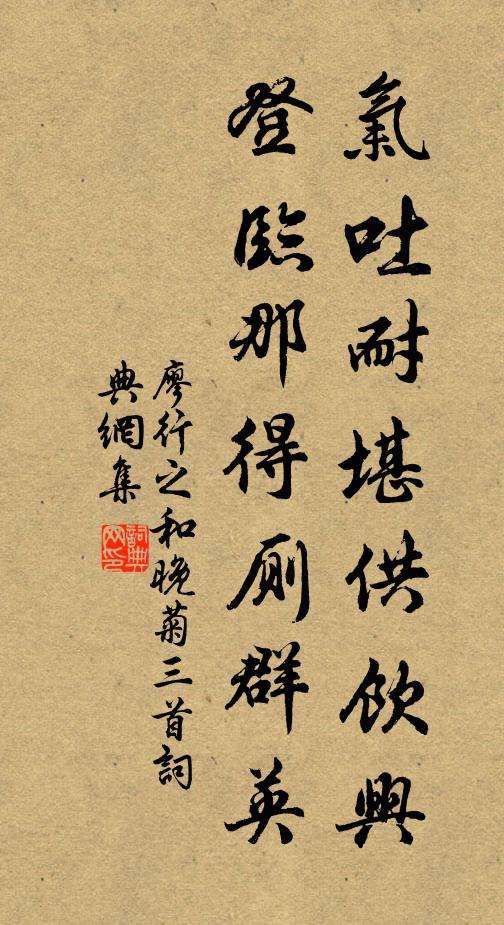 氣吐耐堪供飲興
登臨那得厠群英
廖行之和晚菊三首詞
典網集
詞典网印